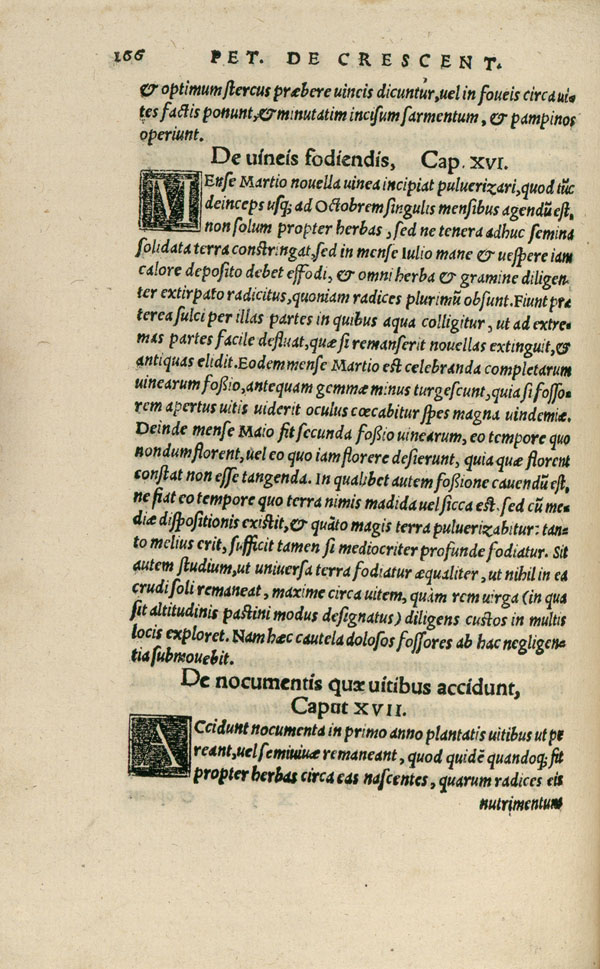 166 PET. DE CRESCENT.
& optimum stercus præbere uincis dicuntur, uel in foueis circa ui-
tes factis ponunt, & minutatim incisum sarmentum, & pampinos
operiunt.
De uineis fodiendis, Cap. XVI.
MEnse Martio nouella uinea incipiat puluerizari, quod tūc
deinceps usq; ad Octobrem singulis mensibus agendū est,
non solum propter herbas, sed ne tenera adhuc semina
solidata terra constringat, sed in mense Iulio mane & uespere iam
calore deposito debet effodi, & omni herba & gramine diligen-
ter extirpato radicitus, quoniam radices plurimū obsunt. Fiunt præ
terea sulci per illas partes in quibus aqua colligitur, ut ad extre-
mas partes facile defluat, quæ si remanserit nouellas extinguit, &
antiquas elidit. Eodem mense Martio est celebranda completarum
uinearum foßio, antequam gemmæ minus turgescunt, quia si fosso-
rem apertus uitis uiderit oculus cœcabitur spes magna uindemiæ.
Deinde mense Maio fit secunda foßio uinearum, eo tempore quo
nondum florent, uel eo quo iam florere desierunt, quia quæ florent
constat non esse tangenda. In qualibet autem foßione cauendū est,
ne fiat eo tempore quo terra nimis madida uel sicca est. sed cū me-
diæ dispositionis existit, & quāto magis terra puluerizabitur: tan-
to melius erit, sufficit tamen si mediocriter profunde fodiatur. Sit
autem studium, ut uniuersa terra fodiatur æqualiter, ut nihil in ea
crudi soli remaneat, maxime circa uitem, quàm rem uirga (in qua
sit altitudinis pastini modus designatus) diligens custos in multis
locis exploret. Nam hæc cautela dolosos fossores ab hac negligen-
tia submouebit.
De nocumentis quæ uitibus accidunt,
Caput XVII.
ACcidunt nocumenta in primo anno plantatis uitibus ut pe
reant, uel semiuiuæ remaneant, quod quidē quandoq; fit
propter herbas circa eas nascentes, quarum radices eis
nutrimentum